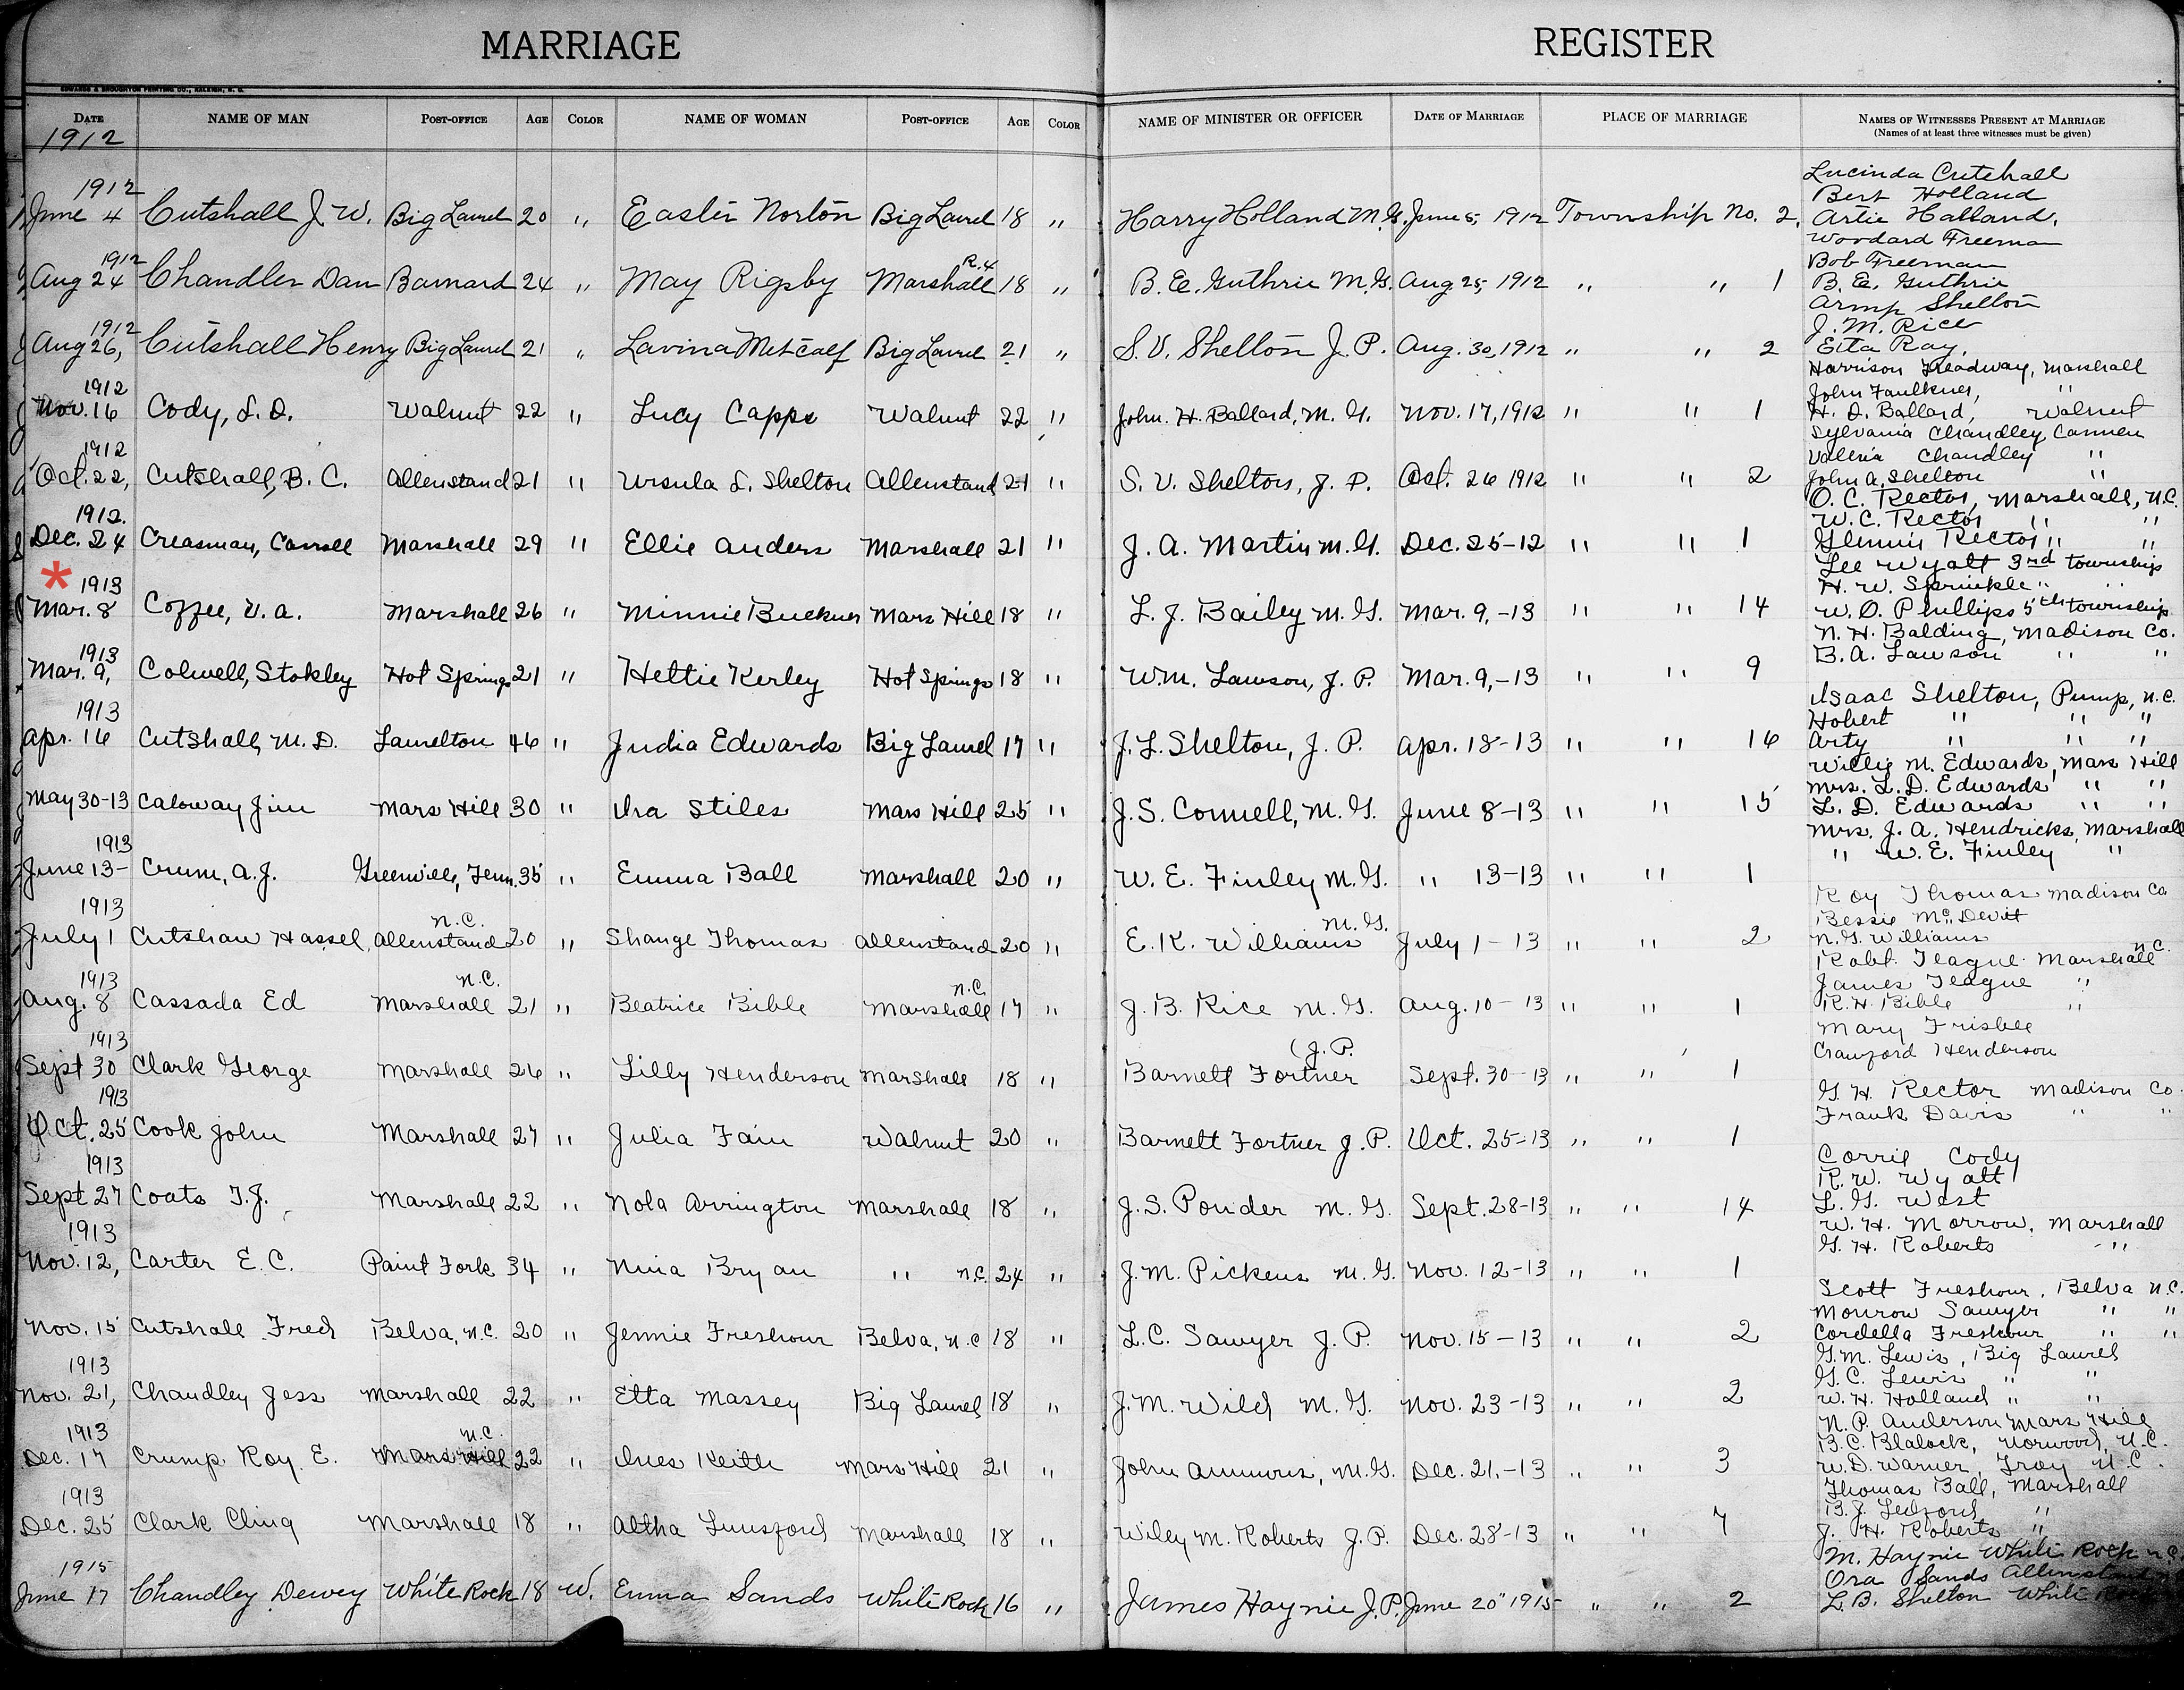 MARRIAGE REGISTER
EDWARDS & BROUGHTON PRINTING CO., RALEIGH, N. C.
DATE NAME OF MAN POST-OFFICE AGE COLOR NAME OF WOMAN POST-OFFICE AGE COLOR NAME OF MINISTER OR OFFICER DATE OF MARRIAGE PLACE OF MARRIAGE NAMES OF WITNESSES PRESENT AT MARRIAGE
(Names of at least three witnesses must be given)
1912
Lucinda Cutshall
1912
Bert Holland
June 4 Cutshall J. W. Big Laurel 20 " Easter Norton Big Laurel 18 " Harry Holland M.G. June 5, 1912 Township No. 2, Artie Holland,
Woodard Freeman
1912 R.4
Bob Freeman
Aug 24 Chandler Dan Barnard 24 " May Rigsby Marshall 18 " B. E. Guthrie M.G. Aug 25, 1912 " " 1 B. E. Guthrie
Armp Shelton
1912
J. M. Rice
Aug 26, Cutshall Henry Big Laurel 21 " Lavina Metcalf Big Laurel 21 " S. V. Shelton J. P. Aug. 30, 1912 " " 2 Eita Ray,
Harrison Treadway, Marshall
1912
John Faulkner, "
Nov. 16 Cody, S. D. Walnut 22 " Lucy Capps Walnut 22 " John. H. Ballard, M. G. Nov. 17, 1912 " " 1 H. D. Ballard, Walnut
Sylvania Chandley, Carmen
1912
Valeria Chandley "
Oct. 22, Cutshall, B. C. Allenstand 21 " Ursula S. Shelton Allenstand 21 " S. V. Shelton, J. P. Oct. 26 1912 " " 2 John A. Shelton "
O. C. Rector, Marshall, N.C.
1912.
W. C. Rector " "
Dec. 24 Creasman, Carroll Marshall 29 " Ellie Anders Marshall 21 " J. A. Martin M.G. Dec. 25-12 " " 1 Glennis Rector " "
Lee Wyatt 3rd township
* 1913
H. W. Sprinkle " "
Mar. 8 Coffee, V. A. Marshall 26 " Minnie Buckner Mars Hill 18 " L. J. Bailey M. G. Mar. 9, -13 " " 14 W. O. Phillips 5th township
N. H. Balding, Madison Co.
1913
B. A. Lawson " "
Mar. 9, Colwell, Stokley Hot Springs 21 " Hettie Kerley Hot Springs 18 " Wm. Lawson, J. P. Mar. 9, -13 " " 9
Isaac Shelton, Pump, N.C.
1913
Hobert " " "
Apr. 16 Cutshall, M. D. Laurelton 46 " Judia Edwards Big Laurel 17 " J. L. Shelton, J. P. Apr. 18-13 " " 16 Arty " " "
Willie M. Edwards, Mars Hill
Mrs. L. D. Edwards " "
May 30-13 Caloway Jim Mars Hill 30 " Ira Stiles Mars Hill 25 " J. S. Connell, M. G. June 8-13 " " 15 L. D. Edwards " "
Mrs. J. A. Hendricks, Marshall
1913
" W. E. Finley "
June 13- Crum, A. J. Greenville, Tenn. 35 " Emma Ball Marshall 20 " W. E. Finley M. G. " 13-13 " " 1
Roy Thomas Madison Co
1913 N.C. M. G.
Bessie McDevitt
July 1 Cutshaw Hassel Allenstand 20 " Shange Thomas Allenstand 20 " E. K. Williams July 1-13 " " 2 N. G. Williams
Robt. Teague Marshall N.C.
1913 N.C. N.C.
James Teague "
Aug. 8 Cassada Ed Marshall 21 " Beatrice Bible Marshall 17 " J. B. Rice M. G. Aug. 10-13 " " 1 R. H. Bible "
Mary Frisbee
1913 (J. P.
Crawford Henderson
Sept 30 Clark George Marshall 26 " Lilly Henderson Marshall 18 " Barnett Fortner Sept. 30-13 " " 1
G. H. Rector Madison Co.
1913
Frank Davis " "
Oct. 25 Cook John Marshall 27 " Julia Fain Walnut 20 " Barnett Fortner J. P. Oct. 25-13 " " 1
Corrie Cody
1913
R. W. Wyatt
Sept 27 Coats T. J. Marshall 22 " Nola Arrington Marshall 18 " J. S. Ponder M. G. Sept. 28-13 " " 14 L. G. West
W. H. Morrow, Marshall
1913
G. H. Roberts "
Nov. 12, Carter E. C. Paint Fork 34 " Nina Bryan " N.C. 24 " J. M. Pickens M. G. Nov. 12-13 " " 1
Scott Freshour, Belva N.C.
Monrow Sawyer " "
Nov. 15 Cutshall Fred Belva, N.C. 20 " Jennie Freshour Belva, N.C 18 " L. C. Sawyer J. P. Nov. 15-13 " " 2 Cordella Freshour " "
G. M. Lewis, Big Laurel
1913
G. C. Lewis " "
Nov. 21, Chandley Jess Marshall 22 " Etta Massey Big Laurel 18 " J. M. Wild M. G. Nov. 23-13 " " 2 W. H. Holland " "
N. P. Anderson Mars Hill
1913 N.C.
B. C. Blalock, Norwood, N.C.
Dec. 17 Crump Roy E. Mars Hill 22 " Ines Keith Mars Hill 21 " John Ammons, M. G. Dec. 21,-13 " " 3 W. D. Warner, Troy N.C.
Thomas Ball, Marshall
1913
B. J. Ledford "
Dec. 25 Clark Cling Marshall 18 " Altha Lunsford Marshall 18 " Wiley M. Roberts J. P. Dec. 28-13 " " 7 J. H. Roberts "
M. Haynie White Rock N.C.
1915
Ora Sands Allenstand
June 17 Chandley Dewey White Rock 18 W. Emma Sands White Rock 16 " James Haynie J. P. June 20" 1915 " " 2 L. B. Shelton White Rock